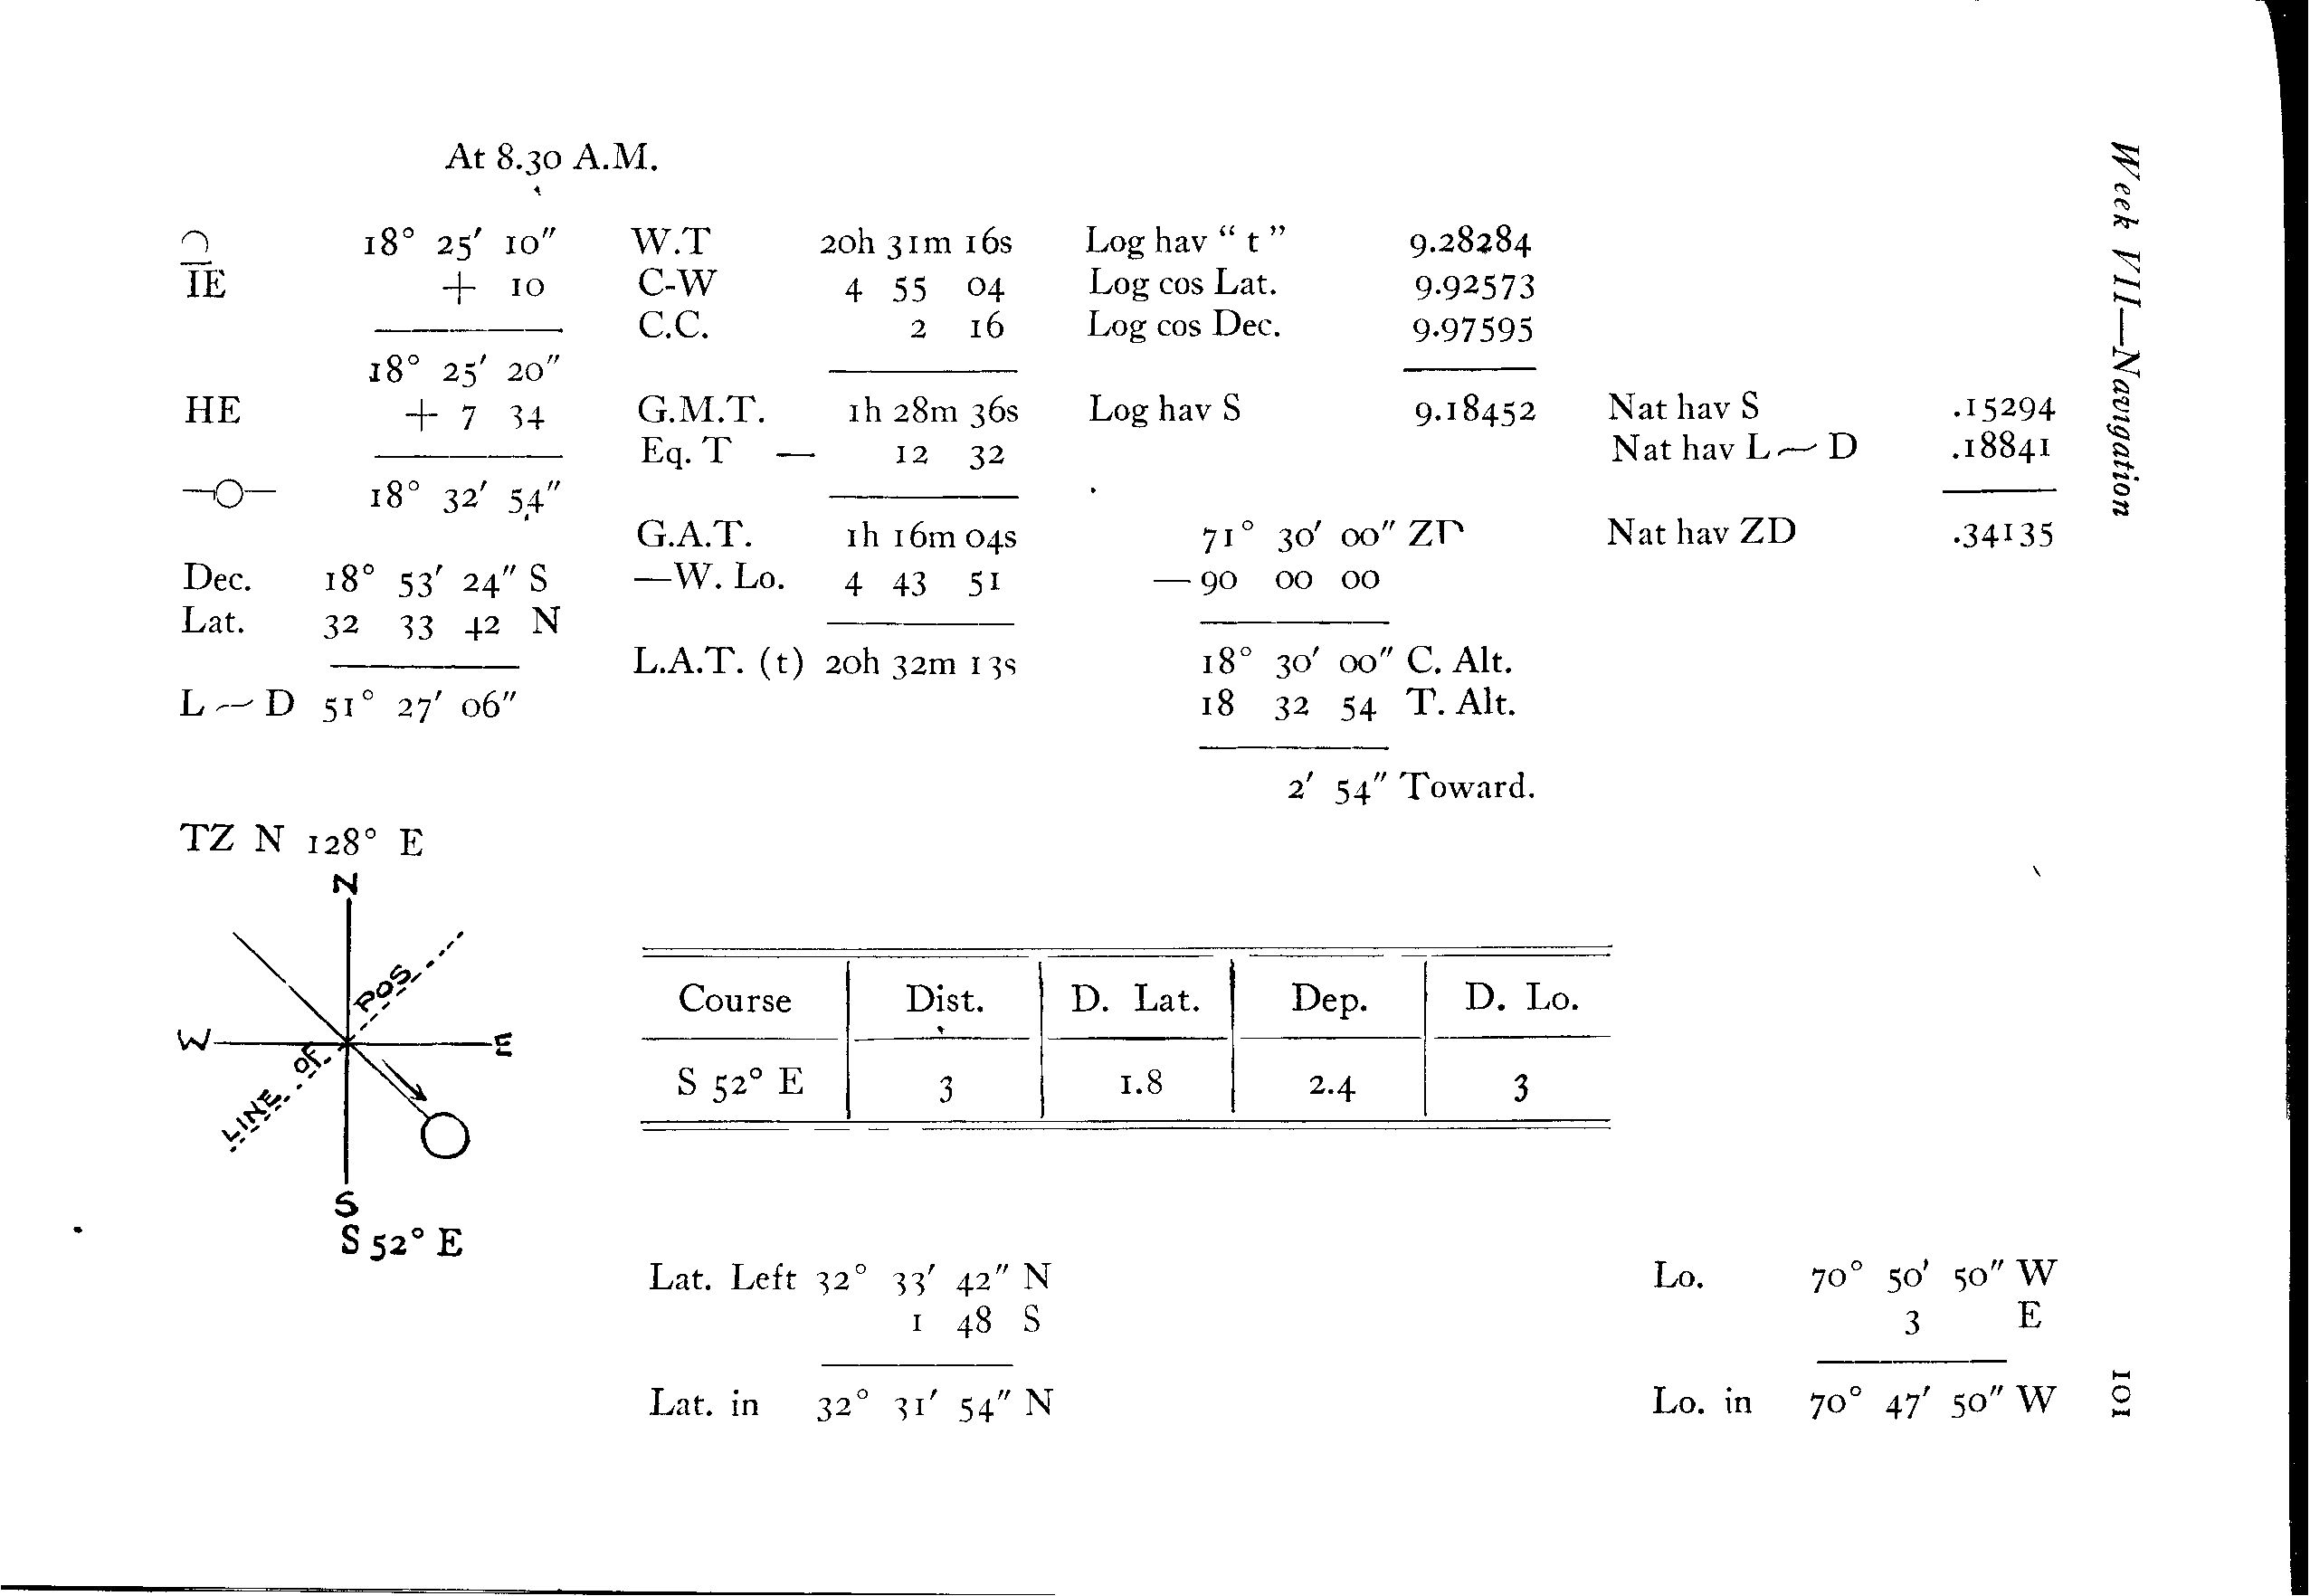 Week VII—Navigation
At 8.30 A.M.
18° 25′ 10″
IE + 10
18° 25′ 20″
HE + 7 34
18° 32′ 54″
Dec. 18° 53′ 24″ S
Lat. 32 33 42 N
L ~ D 51° 27′ 06″
W.T 20h 31m 16s
C-W 4 55 04
C.C. 2 16
G.M.T. 1h 28m 36s
Eq. T — 12 32
G.A.T. 1h 16m 04s
—W. Lo. 4 43 51
L.A.T. (t) 20h 32m 13s
Log hav “ t ” 9.28284
Log cos Lat. 9.92573
Log cos Dec. 9.97595
Log hav S 9.18452
Nat hav S .15294
Nat hav L ~ D .18841
Nat hav ZD .34135
71° 30′ 00″ ZD
— 90 00 00
18° 30′ 00″ C. Alt.
18 32 54 T. Alt.
2′ 54″ Toward.
TZ N 128° E
N
W
E
LINE OF POS
S
S 52° E
Course Dist. D. Lat. Dep. D. Lo.
S 52° E 3 1.8 2.4 3
Lat. Left 32° 33′ 42″ N
1 48 S
Lat. in 32° 31′ 54″ N
Lo. 70° 50′ 50″ W
3 E
Lo. in 70° 47′ 50″ W
101